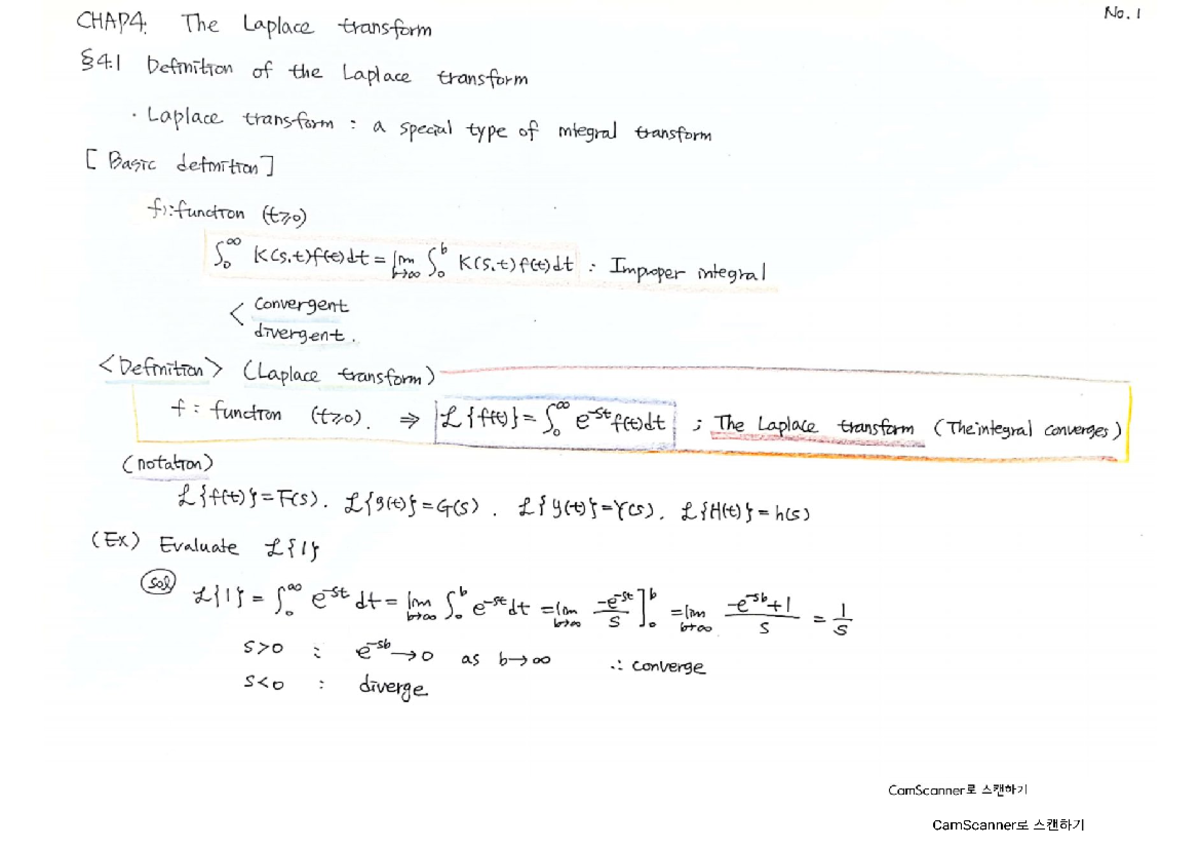 No. 1
CHAP4. The Laplace transform
§4.1 Definition of the Laplace transform
· Laplace transform : a special type of integral transform
[ Basic definition ]
f : function (t≥0)
∫₀^∞ K(s,t)f(t)dt = lim_{b→∞} ∫₀^b K(s,t)f(t)dt : Improper integral
< convergent
divergent.
<Definition> (Laplace transform)
f : function (t≥0). ⇒ ℒ{f(t)} = ∫₀^∞ e^{-st} f(t)dt ; The Laplace transform (The integral converges)
(notation)
ℒ{f(t)}=F(s). ℒ{g(t)}=G(s). ℒ{y(t)}=Y(s). ℒ{H(t)}=h(s)
(Ex) Evaluate ℒ{1}
sol ℒ{1} = ∫₀^∞ e^{-st} dt = lim_{b→∞} ∫₀^b e^{-st} dt = lim_{b→∞} -e^{-st}/s ]₀^b = lim_{b→∞} (-e^{-sb}+1)/s = 1/s
s>0 : e^{-sb}→0 as b→∞ ∴ converge
s<0 : diverge
CamScanner로 스캔하기
CamScanner로 스캔하기